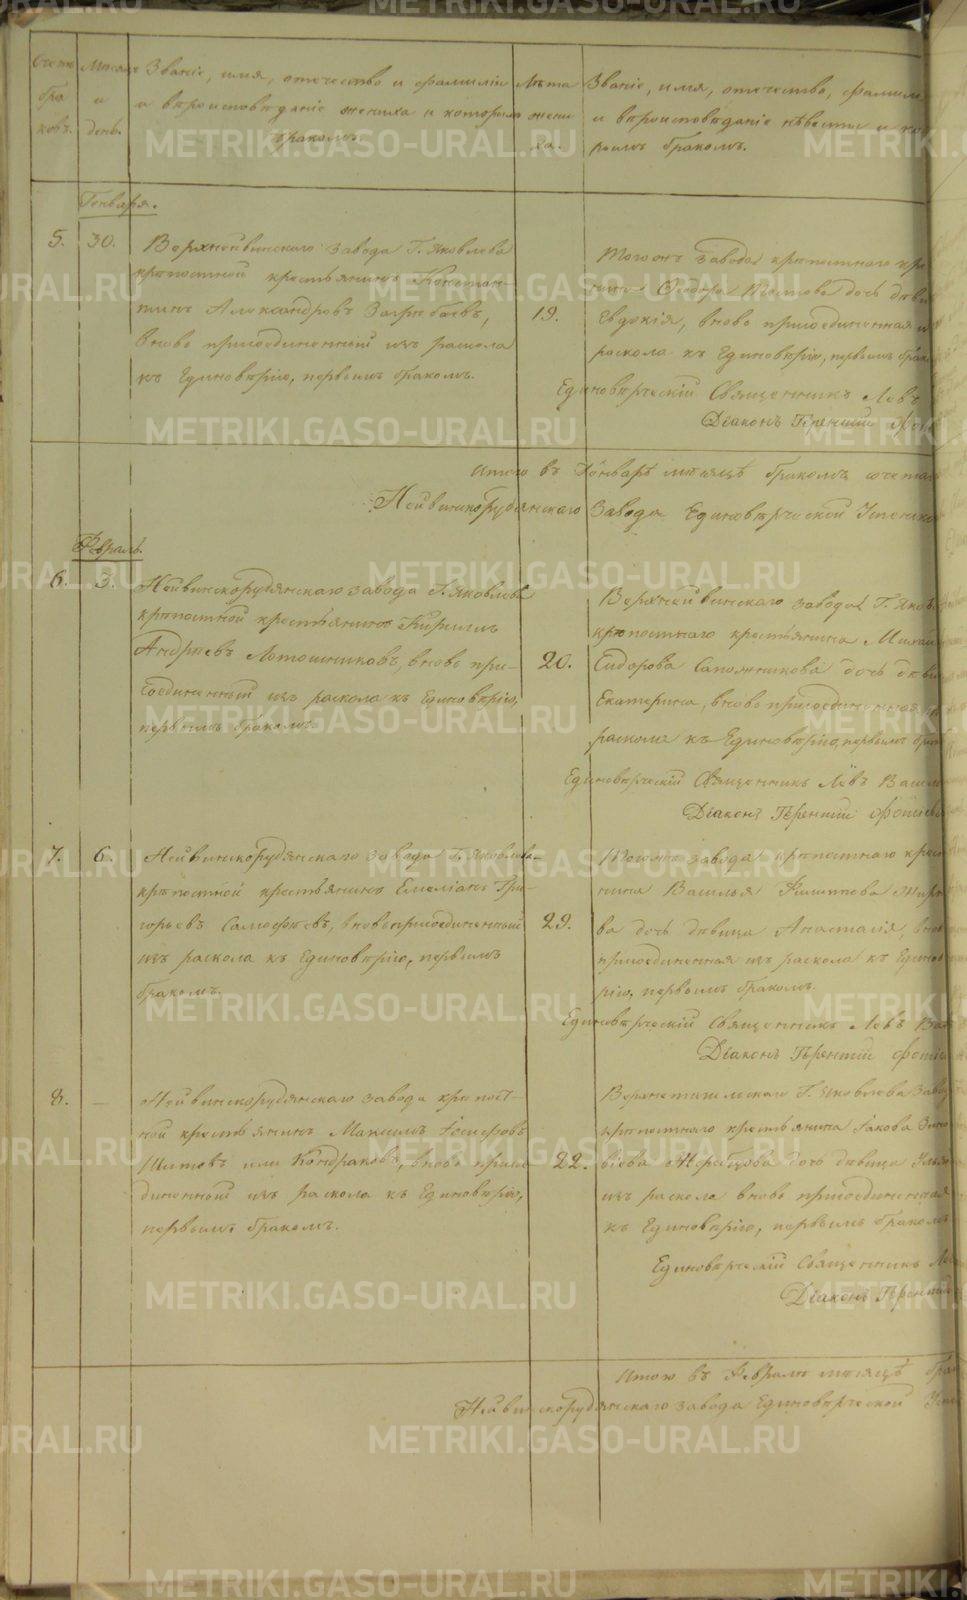 Счетъ браковъ.
Мѣсяцъ и день.
Званіе, имя, отечество и фамилія
и вѣроисповѣданіе жениха и которымъ
бракомъ.
Лѣта
жени
ха.
Званіе, имя, отечество, фамилі
и вѣроисповѣданіе невѣсты и ко
рымъ бракомъ.
Генваря.
5. 30. Верхнейвинскаго завода Г. Яковлева
крѣпостной крестьянинъ Констан-
тинъ Александровъ
вновь присоединенный изъ раскола
къ Единовѣрію, первымъ бракомъ.
19.
Тогожъ завода крѣпостнаго кре
Ѳеодора дочь дѣви
Евдокія, вновь присоединенная и
раскола къ Единовѣрію, первымъ брако
Единовѣрческій Священникъ Левъ
Діаконъ Терентій
Итого въ Генварѣ мѣсяцѣ бракомъ сочета
Нейвинскорудянскаго Завода Единовѣрческой Успенско
Февраль.
6. 3. Нейвинскорудянскаго завода Г. Яковлева
крѣпостной крестьянинъ Кириллъ
Андреевъ Лотошниковъ, вновь при-
соединенный изъ раскола къ Единовѣрію,
первымъ бракомъ.
20.
Верхнейвинскаго завода Г. Яковл
крѣпостнаго крестьянина Михаи
Сидорова Сапожникова дочь дѣви
Екатерина, вновь присоединенная из
раскола къ Единовѣрію, первымъ бра
Единовѣрческій Священникъ Левъ Василь
Діаконъ Терентій Фотіев
7. 6. Нейвинскорудянскаго завода Г. Яковлева
крѣпостной крестьянинъ Емеліанъ Гри-
горьевъ Самофѣевъ, вновь присоединенный
изъ раскола къ Единовѣрію, первымъ
бракомъ.
22.
Тогожъ завода крѣпостнаго крест
нина Василья Филиппова
ва дочь дѣвица Анастасія, внов
присоединенная изъ раскола къ Единов
рію, первымъ бракомъ.
Единовѣрческій Священникъ Левъ Ва
Діаконъ Терентій Фотіе
8. — Нейвинскорудянскаго завода крѣпост-
ной крестьянинъ Максимъ Іосифовъ
Шитовъ или Кондраковъ, вновь присое
диненный изъ раскола къ Единовѣрію,
первымъ бракомъ.
22.
Верхнетагильскаго Г. Яковлева Заво
крѣпостнаго крестьянина Іакова Зино
віева Жеребцова дочь дѣвица Улья
изъ раскола вновь присоединенная
къ Единовѣрію, первымъ бракомъ
Единовѣрческій Священникъ Ле
Діаконъ Терентій
Итого въ Февралѣ мѣсяцѣ бра
Нейвинскорудянскаго завода Единовѣрческой Успен
METRIKI.GASO-URAL.RU